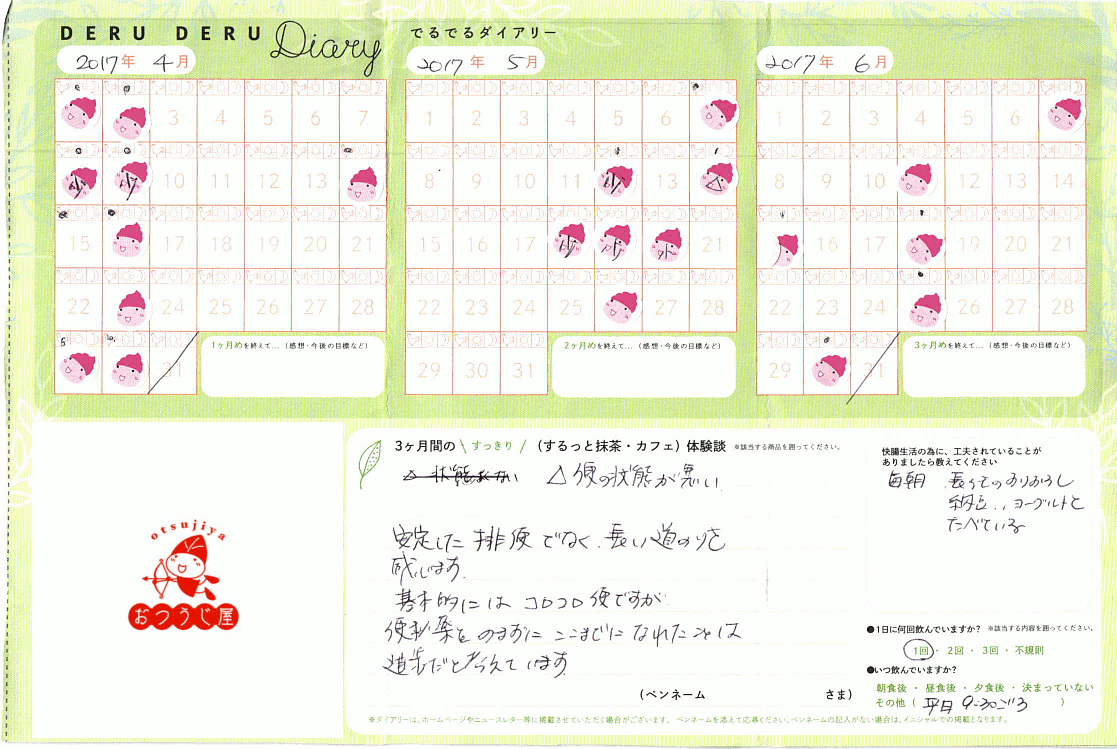 DERU DERU Diary でるでるダイアリー
2017年 4月
2017年 5月
2017年 6月
3 4 5 6 7
少 少 10 11 12 13
15 17 18 19 20 21
22 24 25 26 27 28
31
1ヶ月めを終えて…（感想・今後の目標など）
1 2 3 4 5 6
8 9 10 11 少 13 △
15 16 17 少 21
22 23 24 25 27 28
29 30 31
2ヶ月めを終えて…（感想・今後の目標など）
1 2 3 4 5 6
8 9 10 12 13 14
16 17 19 20 21
22 23 24 26 27 28
29 31
3ヶ月めを終えて…（感想・今後の目標など）
otsujiya
おつうじ屋
3ヶ月間の \ すっきり / （するっと抹茶・カフェ）体験談 ※該当する商品を囲ってください。
△便の状態が悪い
安定した排便でなく、長い道のりを
感じます。
基本的にはコロコロ便ですが
便秘薬をのまずにここまでになれたことは
進歩だと考えています。
（ペンネーム さま）
快腸生活の為に、工夫されていることが
ありましたら教えてください
毎朝
納豆、ヨーグルトを
たべている
●1日に何回飲んでいますか？ ※該当する内容を囲ってください。
1回・2回・3回・不規則
●いつ飲んでいますか？
朝食後・昼食後・夕食後・決まっていない
その他（平日 9:30ごろ）
※ダイアリーは、ホームページやニュースレター等に掲載させていただく場合がございます。 ペンネームを添えて応募ください。ペンネームの記入がない場合は、イニシャルでの掲載となります。